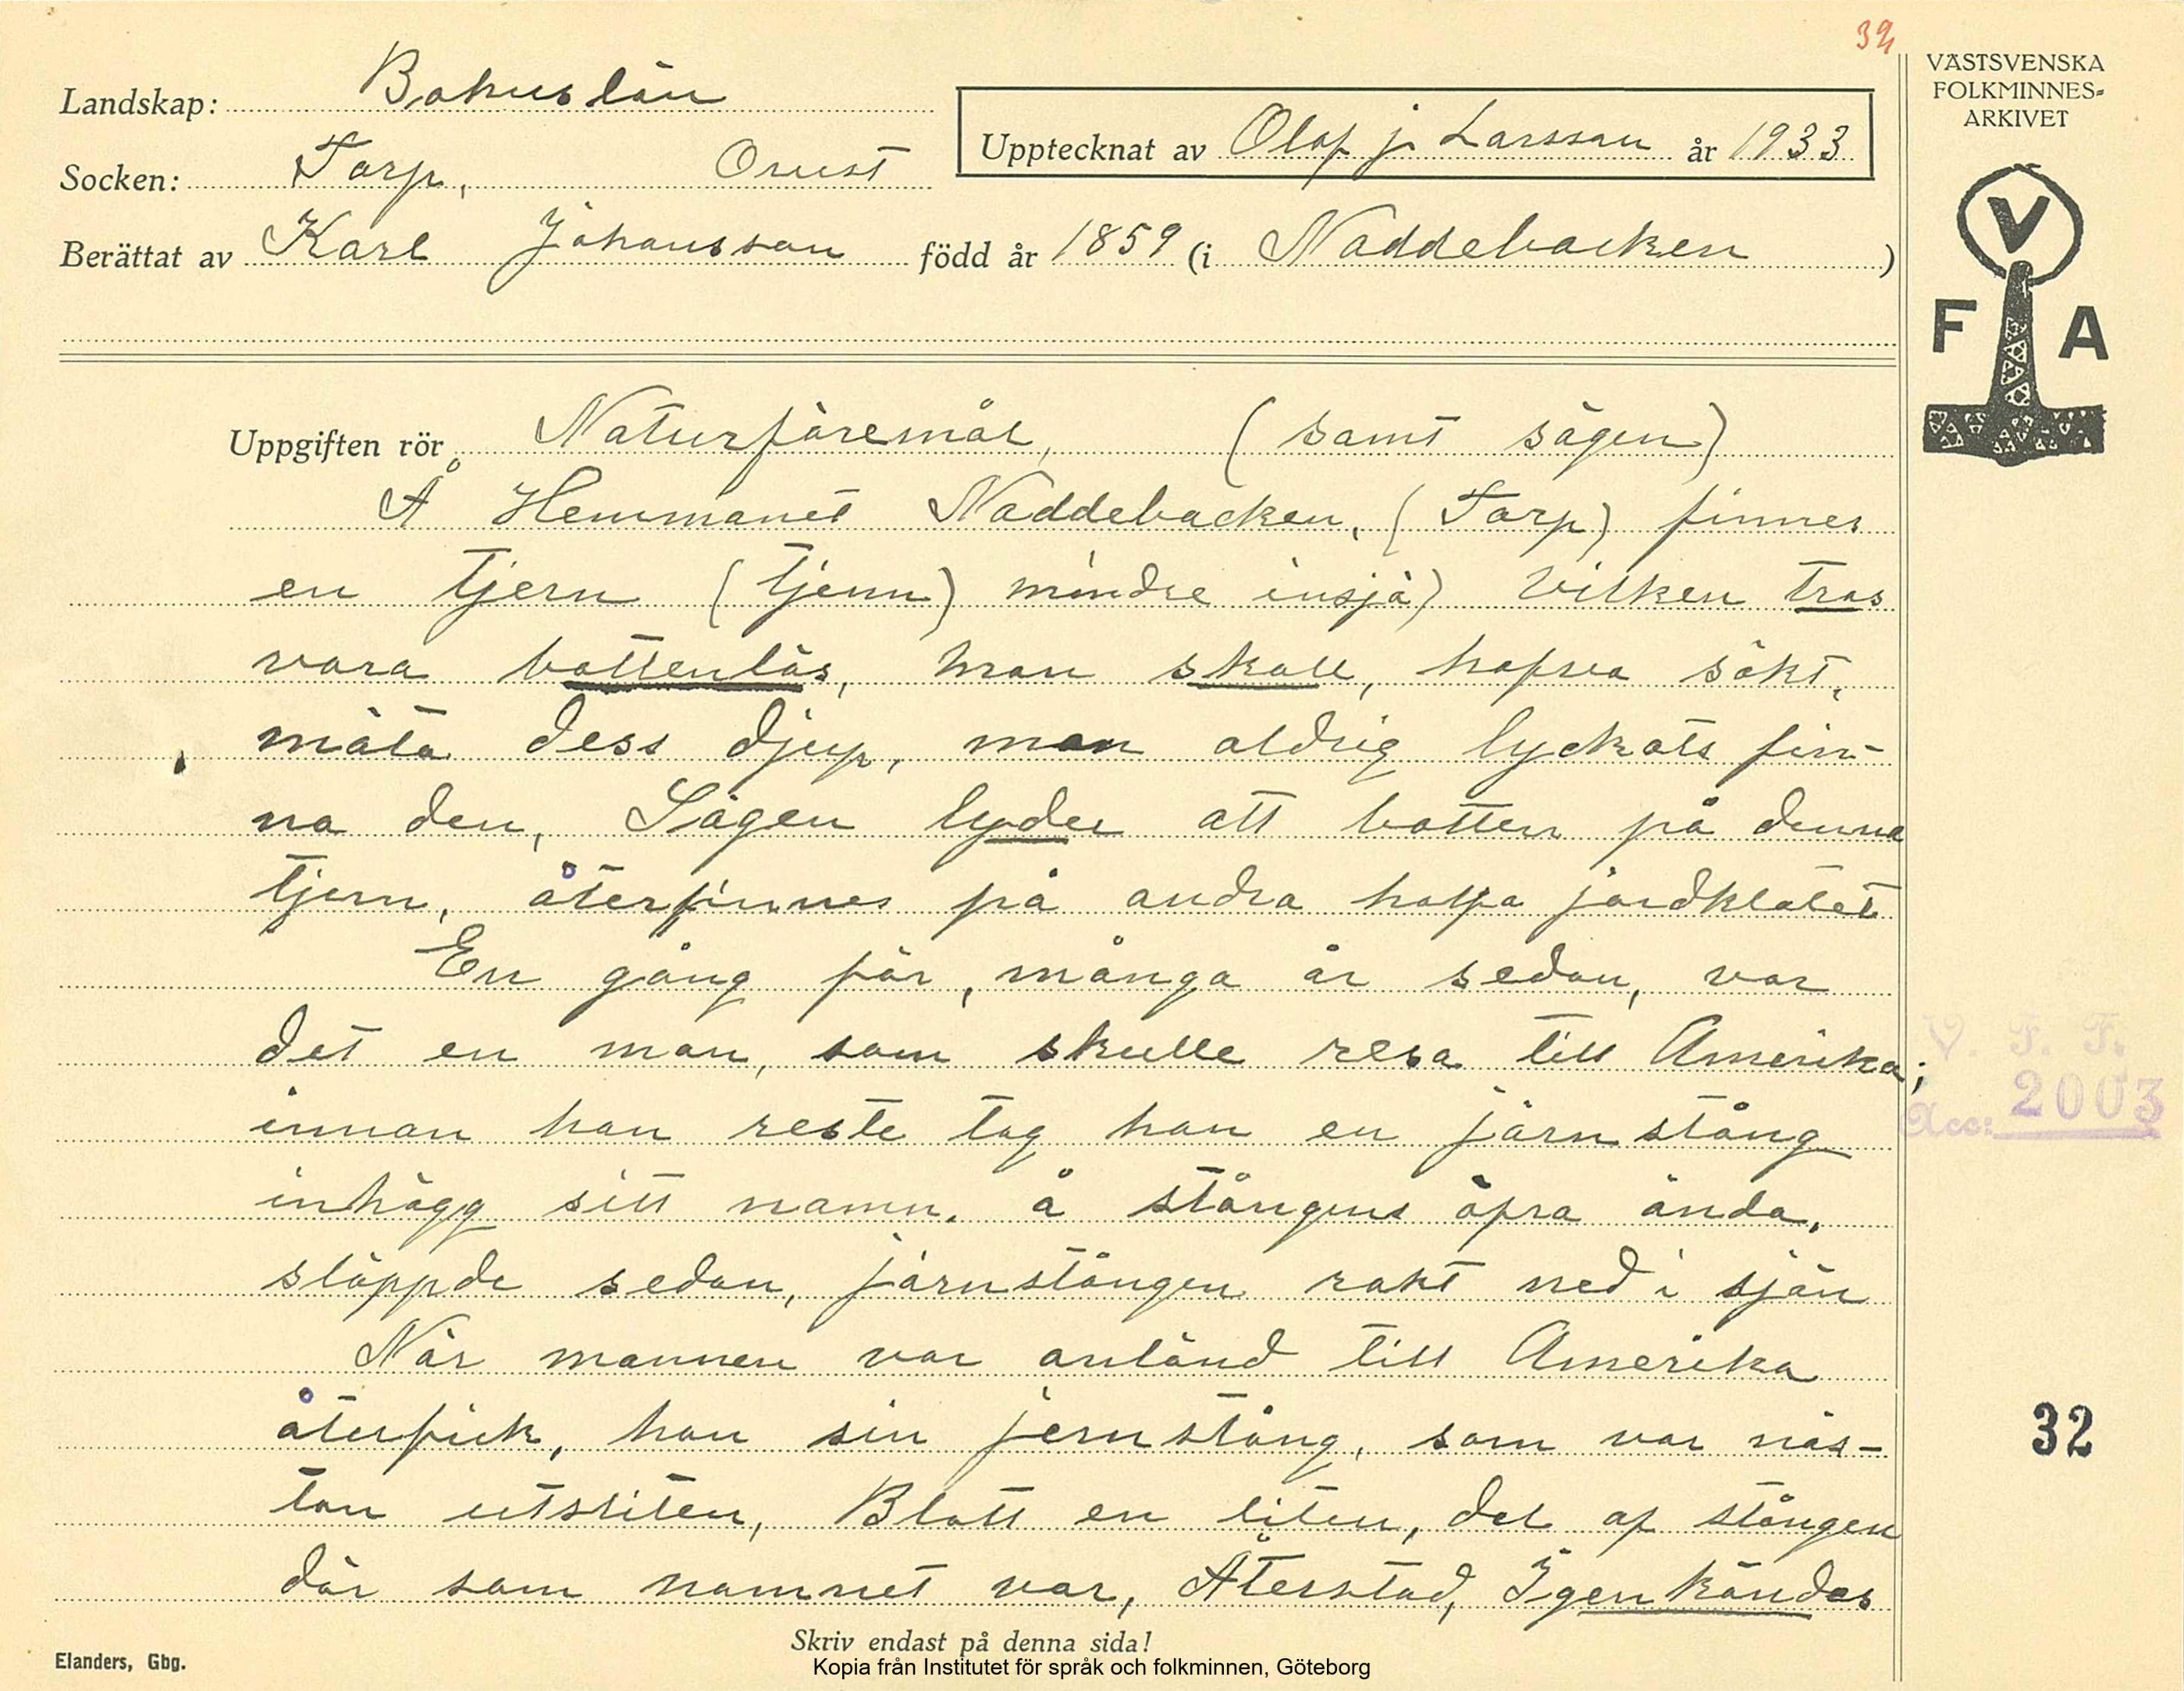 32
VÄSTSVENSKA
FOLKMINNES-
ARKIVET
Landskap: Bohuslän
Upptecknat av Olof j. Larsson år 1933
Socken: Torp, Orust
Berättat av Karl Johansson född år 1859 (i Naddebacken)
V
F A
Uppgiften rör Naturföremål, (samt sägen)
Å Hemmanet Naddebacken, (Torp) finnes
en tjern (tjenn) mindre insjö) vilken tros
vara bottenlös, man skall, hafva sökt,
mäta dess djup, men aldrig lyckats fin-
na den, Sägen lyder att botten på denna
tjern, återfinnes på andra halfa jordklotet
En gång för, många år sedan, var
det en man, som skulle resa till Amerika;
innan han reste tog han en järnstång
inhögg sitt namn, å stångens öfra ända,
släppde sedan, järnstången rakt ned i sjön
När mannen var anländ till Amerika
återfick, han sin jernstång, som var näs-
tan utsliten, Blott en liten, del af stången
där som namnet var, Återstod, Igenkändes
V. F. F.
Acc: 2003
32
Skriv endast på denna sida!
Elanders, Gbg.
Kopia från Institutet för språk och folkminnen, Göteborg